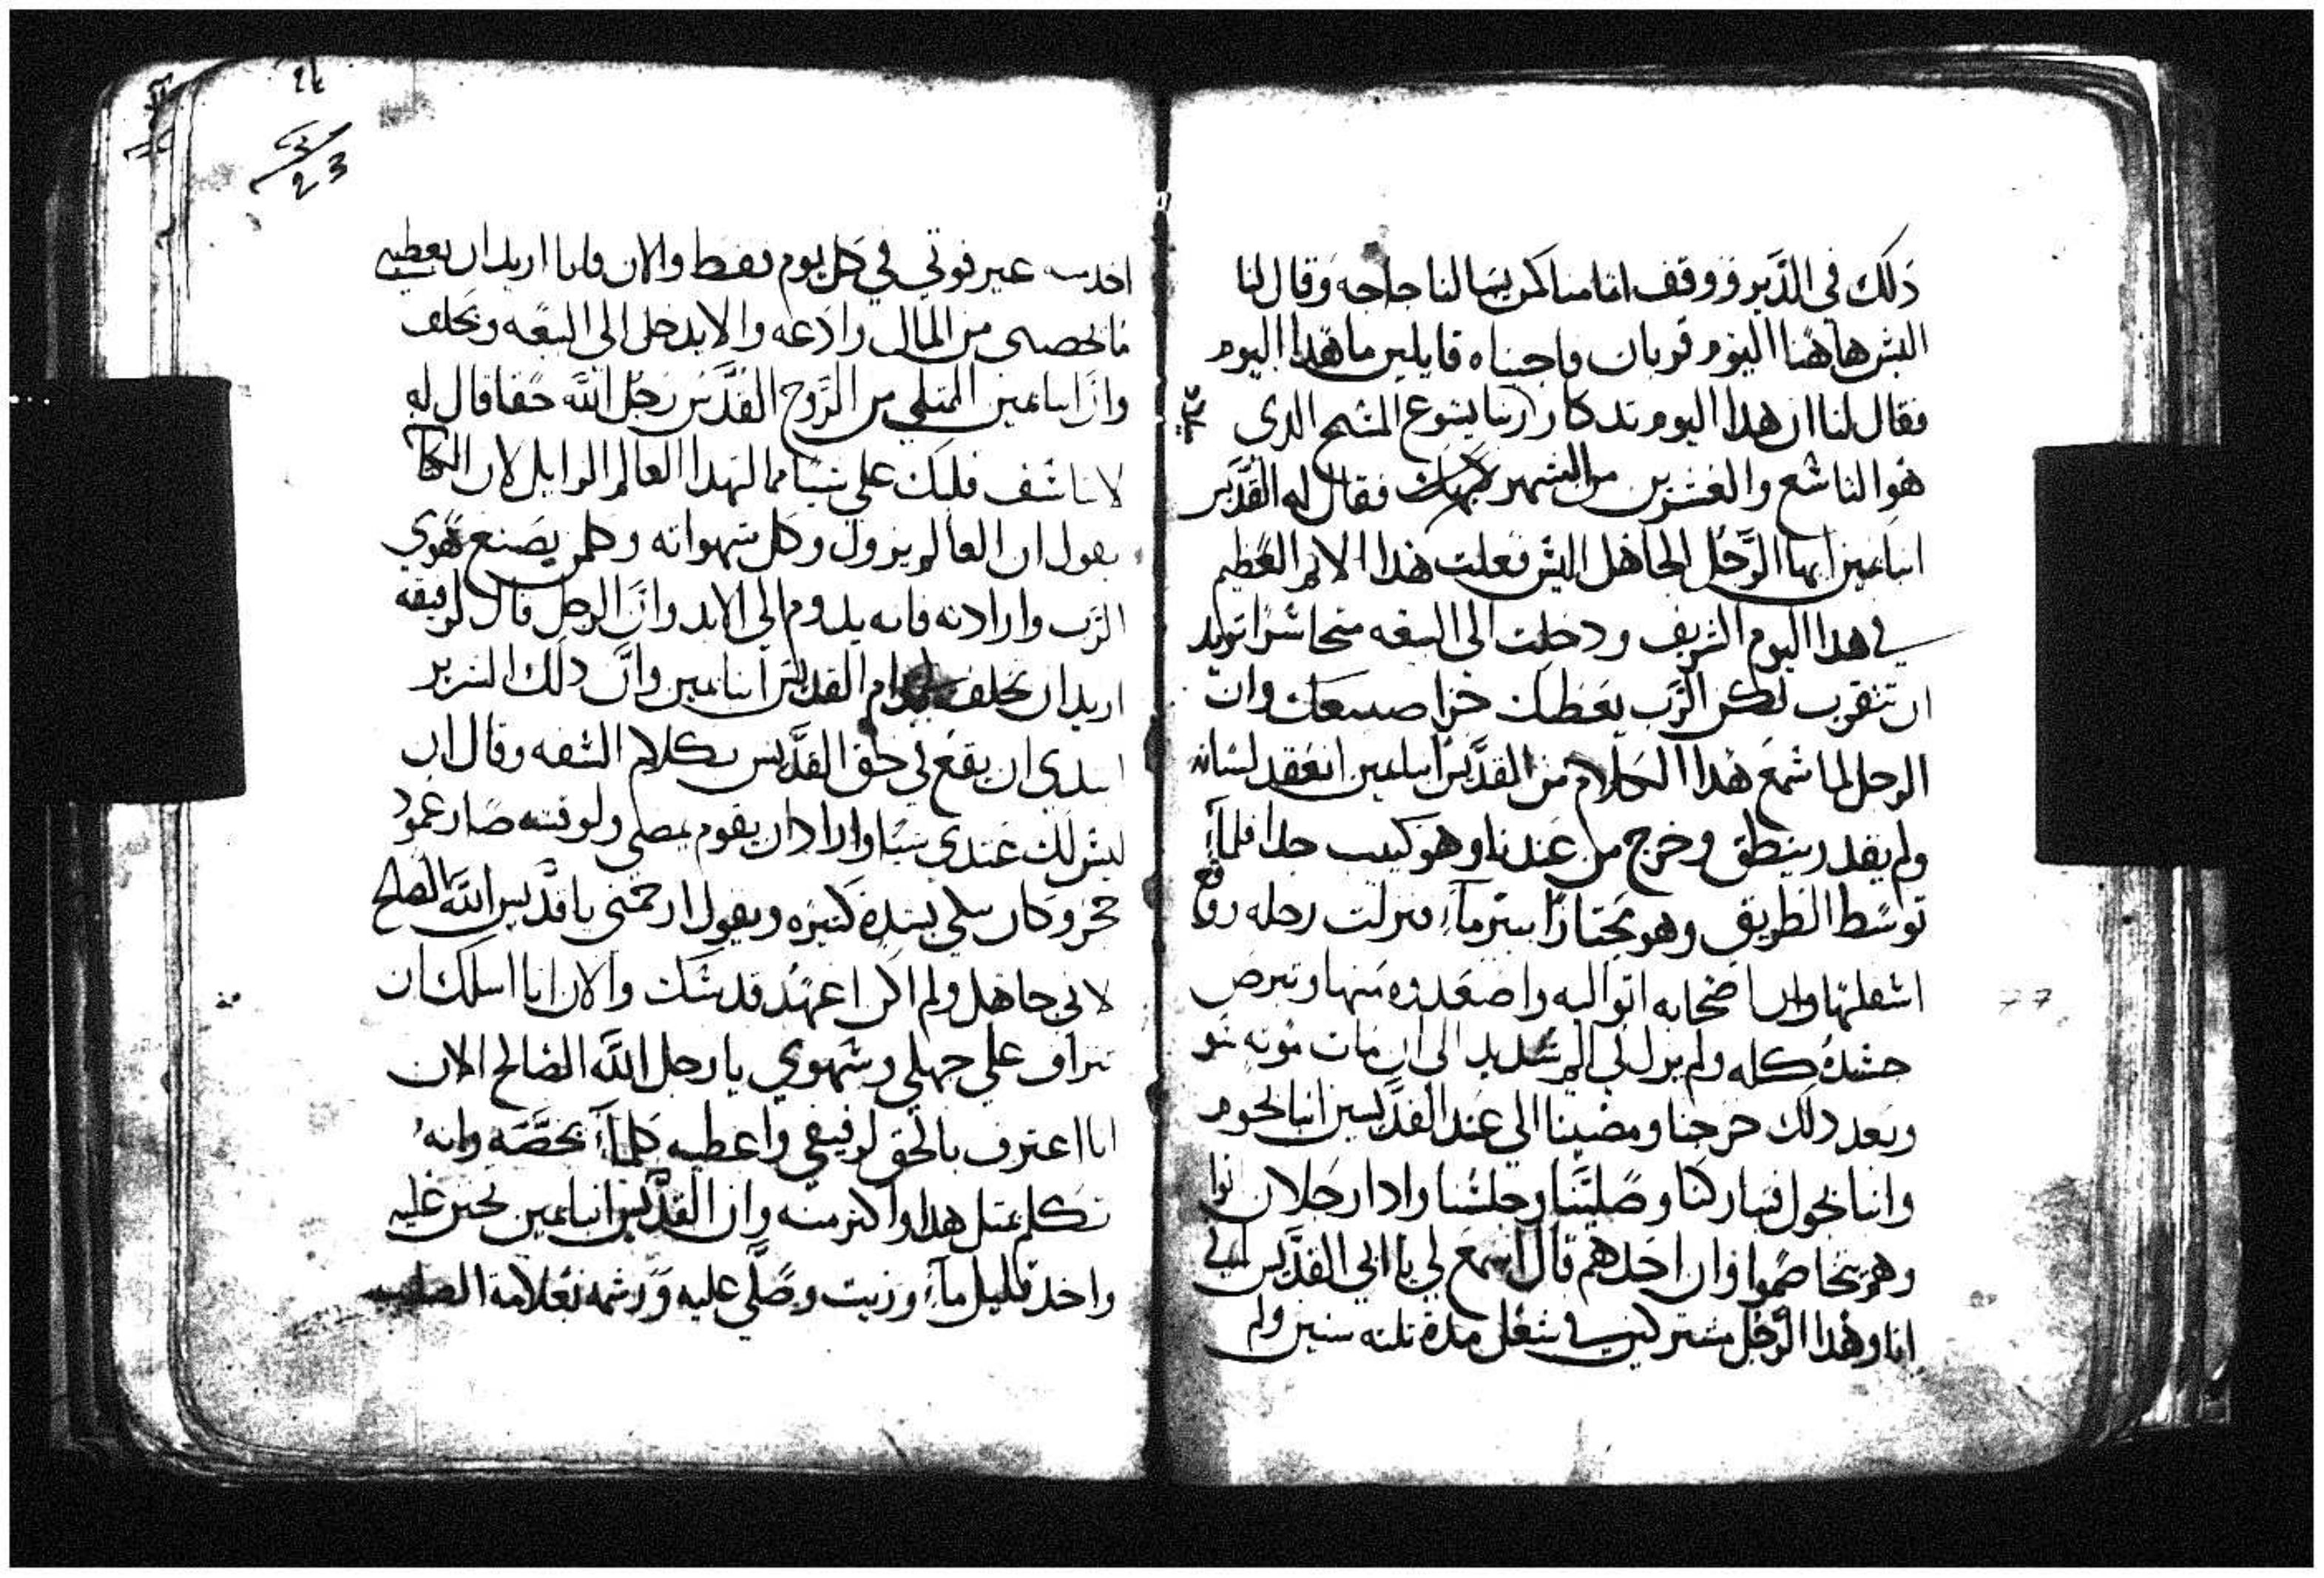 دلك في الدير ووقف امامنا كمن يسالنا حاجه وقال لنا
اليس هاهنا اليوم قربان واجبناه قايلين ما هدا اليوم
فقال لنا ان هدا اليوم تدكار ربنا يسوع المسيح الدي
هو التاسع والعشرين من الشهر فقال له القديس
انبا يمين ايها الرجل الجاهل اليس فعلت هدا الاثم العظيم
في هدا اليوم الشريف ودخلت الى البيعه متجاسرا تريد
ان تتقرب لكن الرب يعطيك جزا صنيعك وان
الرجل لما سمع هدا الكلام من القديس انبا يمين انعقد لسانه
ولم يقدر ينطق وخرج من عندنا وهو كييب جدا فلما
توسط الطريق وهو مجتازا ببير مآء فنزلت رجله وقع
اسفلها وان اصحابه اتوا اليه واصعدوه منها وتبرص
جسده كله ولم يزل في الم شديد الى ان مات موته سو
وبعد دلك خرجنا ومضينا الى عند القديسين انبا بحوم
وانبا بحول فباركنا وصلينا وجلسنا وادا رجلان اتوا
وهم يتخاصموا وان احدهم قال اسمع لي يا ابي القديس
انا وهدا الرجل مشتركين في شغل مدة تلته سنين ولم
23
اخد منه غير قوتي في كل يوم فقط والان فانا اريد ان يعطيني
ما يخصني من المال وادعه والا يدخل الى البيعه ويحلف
وان انبا يمين الممتلي من الروح القدس رجل الله حقا قال له
لا تاسف قلبك على شيا مما لهدا العالم الزايل لان الكتا
يقول ان العالم يزول وكل شهواته وكلمن يصنع هوي
الرب وارادته فانه يدوم الى الابد وان الرجل قال لرفيقه
اريد ان تحلف قدام القديس انبا يمين وان دلك الشرير
ابتدي ان يقع في حق القديس بكلام السفه وقال ان
ليس لك عندي شيا واراد ان يقوم يمضي ولوقته صار عمود
حجر وكان يبكي بشدة كتيره ويقول ارحمني يا قديس الله الصالح
لاني جاهل ولم اكن اعهد قدسك والان انا اسلك ان
تتراف علي جهلي وسهوي يا رجل الله الصالح الان
انا اعترف بالحق لرفيقي واعطيه كلمآ يخصه وانه
تكلم بمتل هدا واكتر منه وان القديس انبا يمين تحنن عليه
واخد قليل مآء وزيت وصلي عليه ورشمه بعلامة الصليب